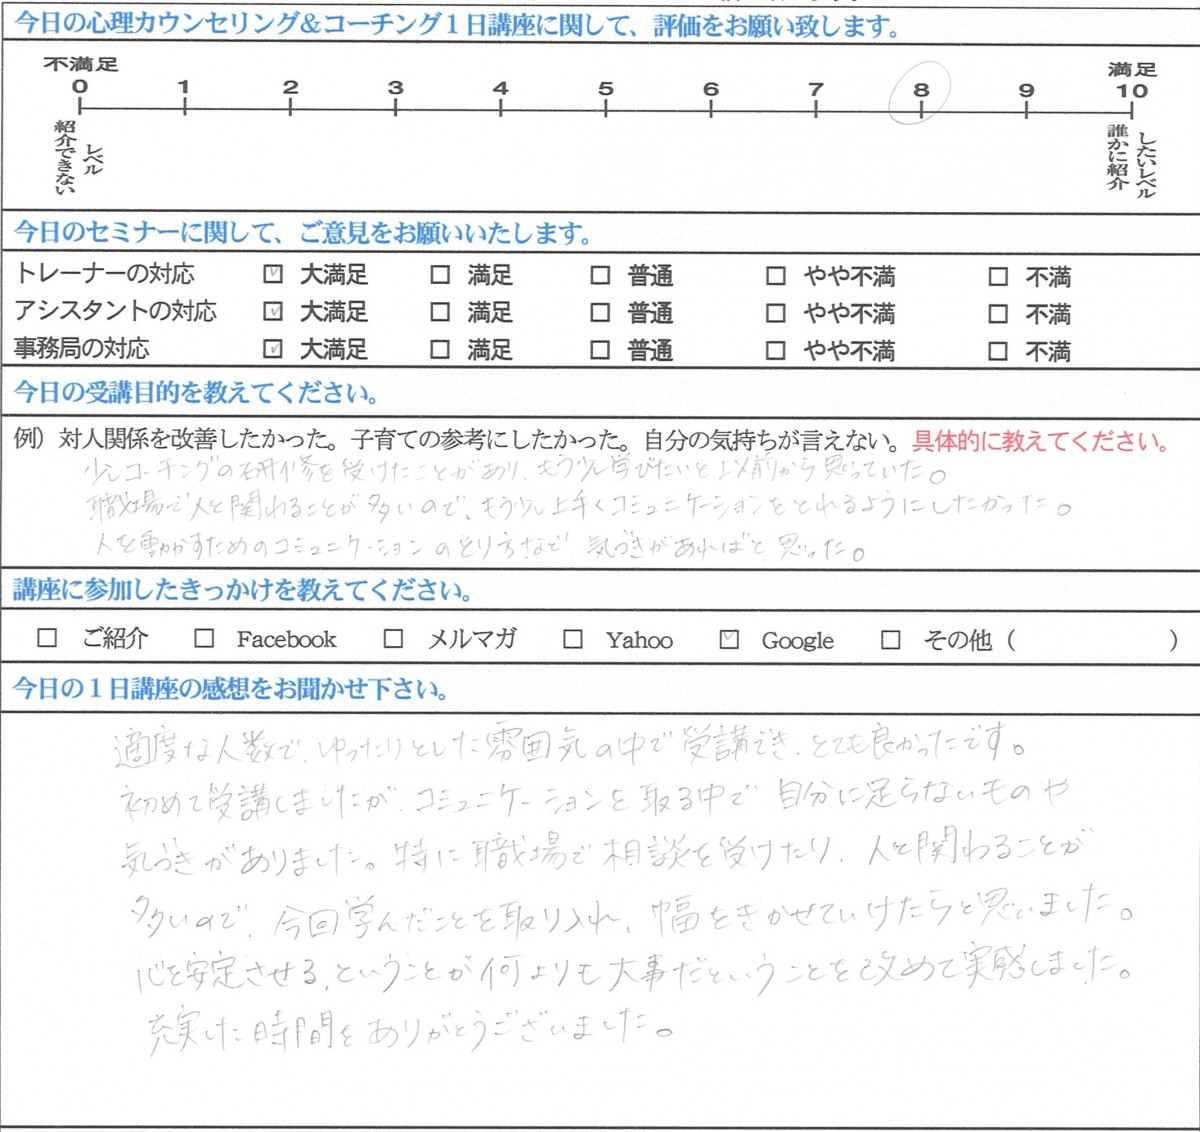 今日の心理カウンセリング＆コーチング１日講座に関して、評価をお願い致します。
不満足 満足
0 1 2 3 4 5 6 7 8 9 10
紹介できないレベル 誰かに紹介したいレベル
今日のセミナーに関して、ご意見をお願いいたします。
トレーナーの対応 ☑ 大満足 □ 満足 □ 普通 □ やや不満 □ 不満
アシスタントの対応 ☑ 大満足 □ 満足 □ 普通 □ やや不満 □ 不満
事務局の対応 ☑ 大満足 □ 満足 □ 普通 □ やや不満 □ 不満
今日の受講目的を教えてください。
例）対人関係を改善したかった。子育ての参考にしたかった。自分の気持ちが言えない。具体的に教えてください。
少しコーチングの研修を受けたことがあり、もう少し学びたいと以前から思っていた。
職場で人と関わることが多いので、もう少し上手くコミュニケーションをとれるようにしたかった。
人を動かすためのコミュニケーションのとり方など、気づきがあればと思った。
講座に参加したきっかけを教えてください。
□ ご紹介 □ Facebook □ メルマガ □ Yahoo ☑ Google □ その他（ ）
今日の１日講座の感想をお聞かせ下さい。
適度な人数で、ゆったりとした雰囲気の中で受講でき、とても良かったです。
初めて受講しましたが、コミュニケーションを取る中で自分に足らないものや
気づきがありました。特に職場で相談を受けたり、人と関わることが
多いので、今回学んだことを取り入れ、幅をきかせていけたらと思いました。
心を安定させる、ということが何よりも大事だということを改めて実感しました。
充実した時間をありがとうございました。